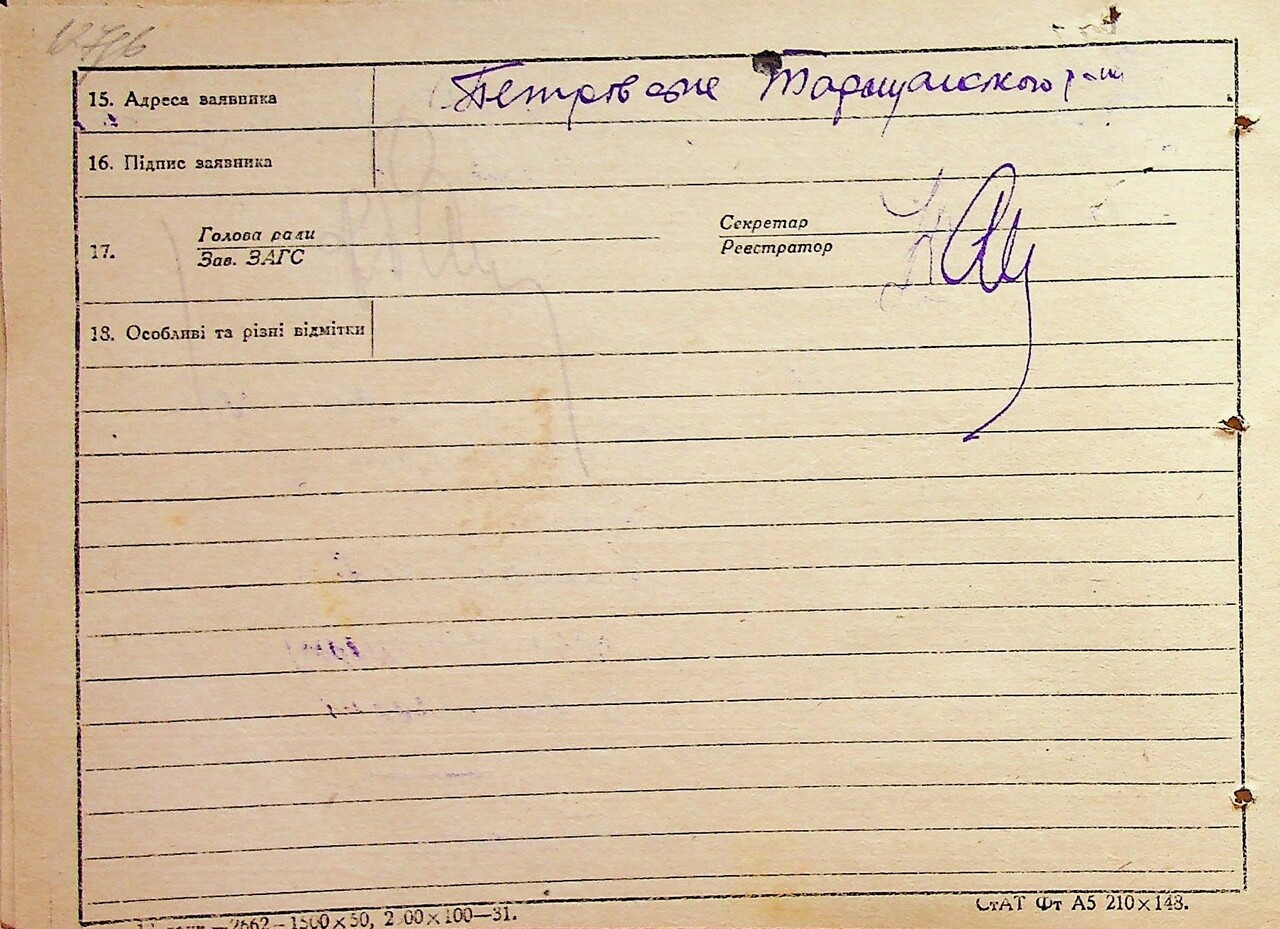 15. Адреса заявника Петровское Таращанского р
16. Підпис заявника
17. Голова ради
Зав. ЗАГС
Секретар
Реєстратор
18. Особливі та різні відмітки
—2662—1500×50, 2 00×100—31.
СтАТ Фт А5 210×148.